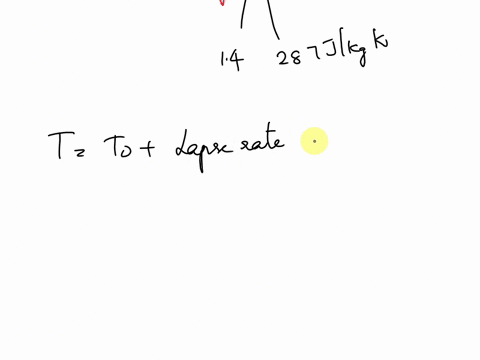 1.4 287 J/kg K
T= T0 + Lapse rate